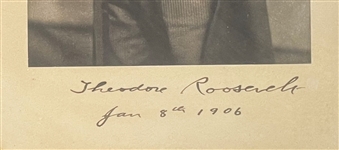 Theodore Roosevelt
Jan 8th 1906